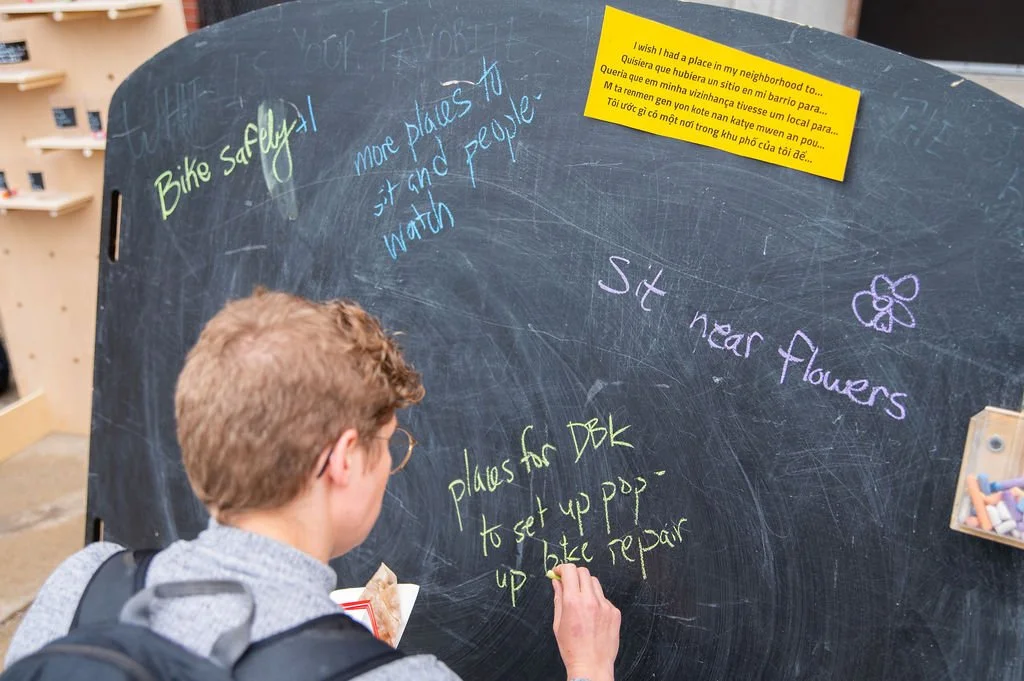 I wish I had a place in my neighborhood to...
Quisiera que hubiera un sitio en mi barrio para...
Queria que em minha vizinhança tivesse um local para...
M ta renmen gen yon kote nan katye mwen an pou...
Tôi ước gì có một nơi trong khu phố của tôi để...
YOUR FAVORITE
WHAT IS
Bike safely +1
more places to
sit and people-
watch
Sit near flowers
places for DBK
to set up pop-
up bike repair